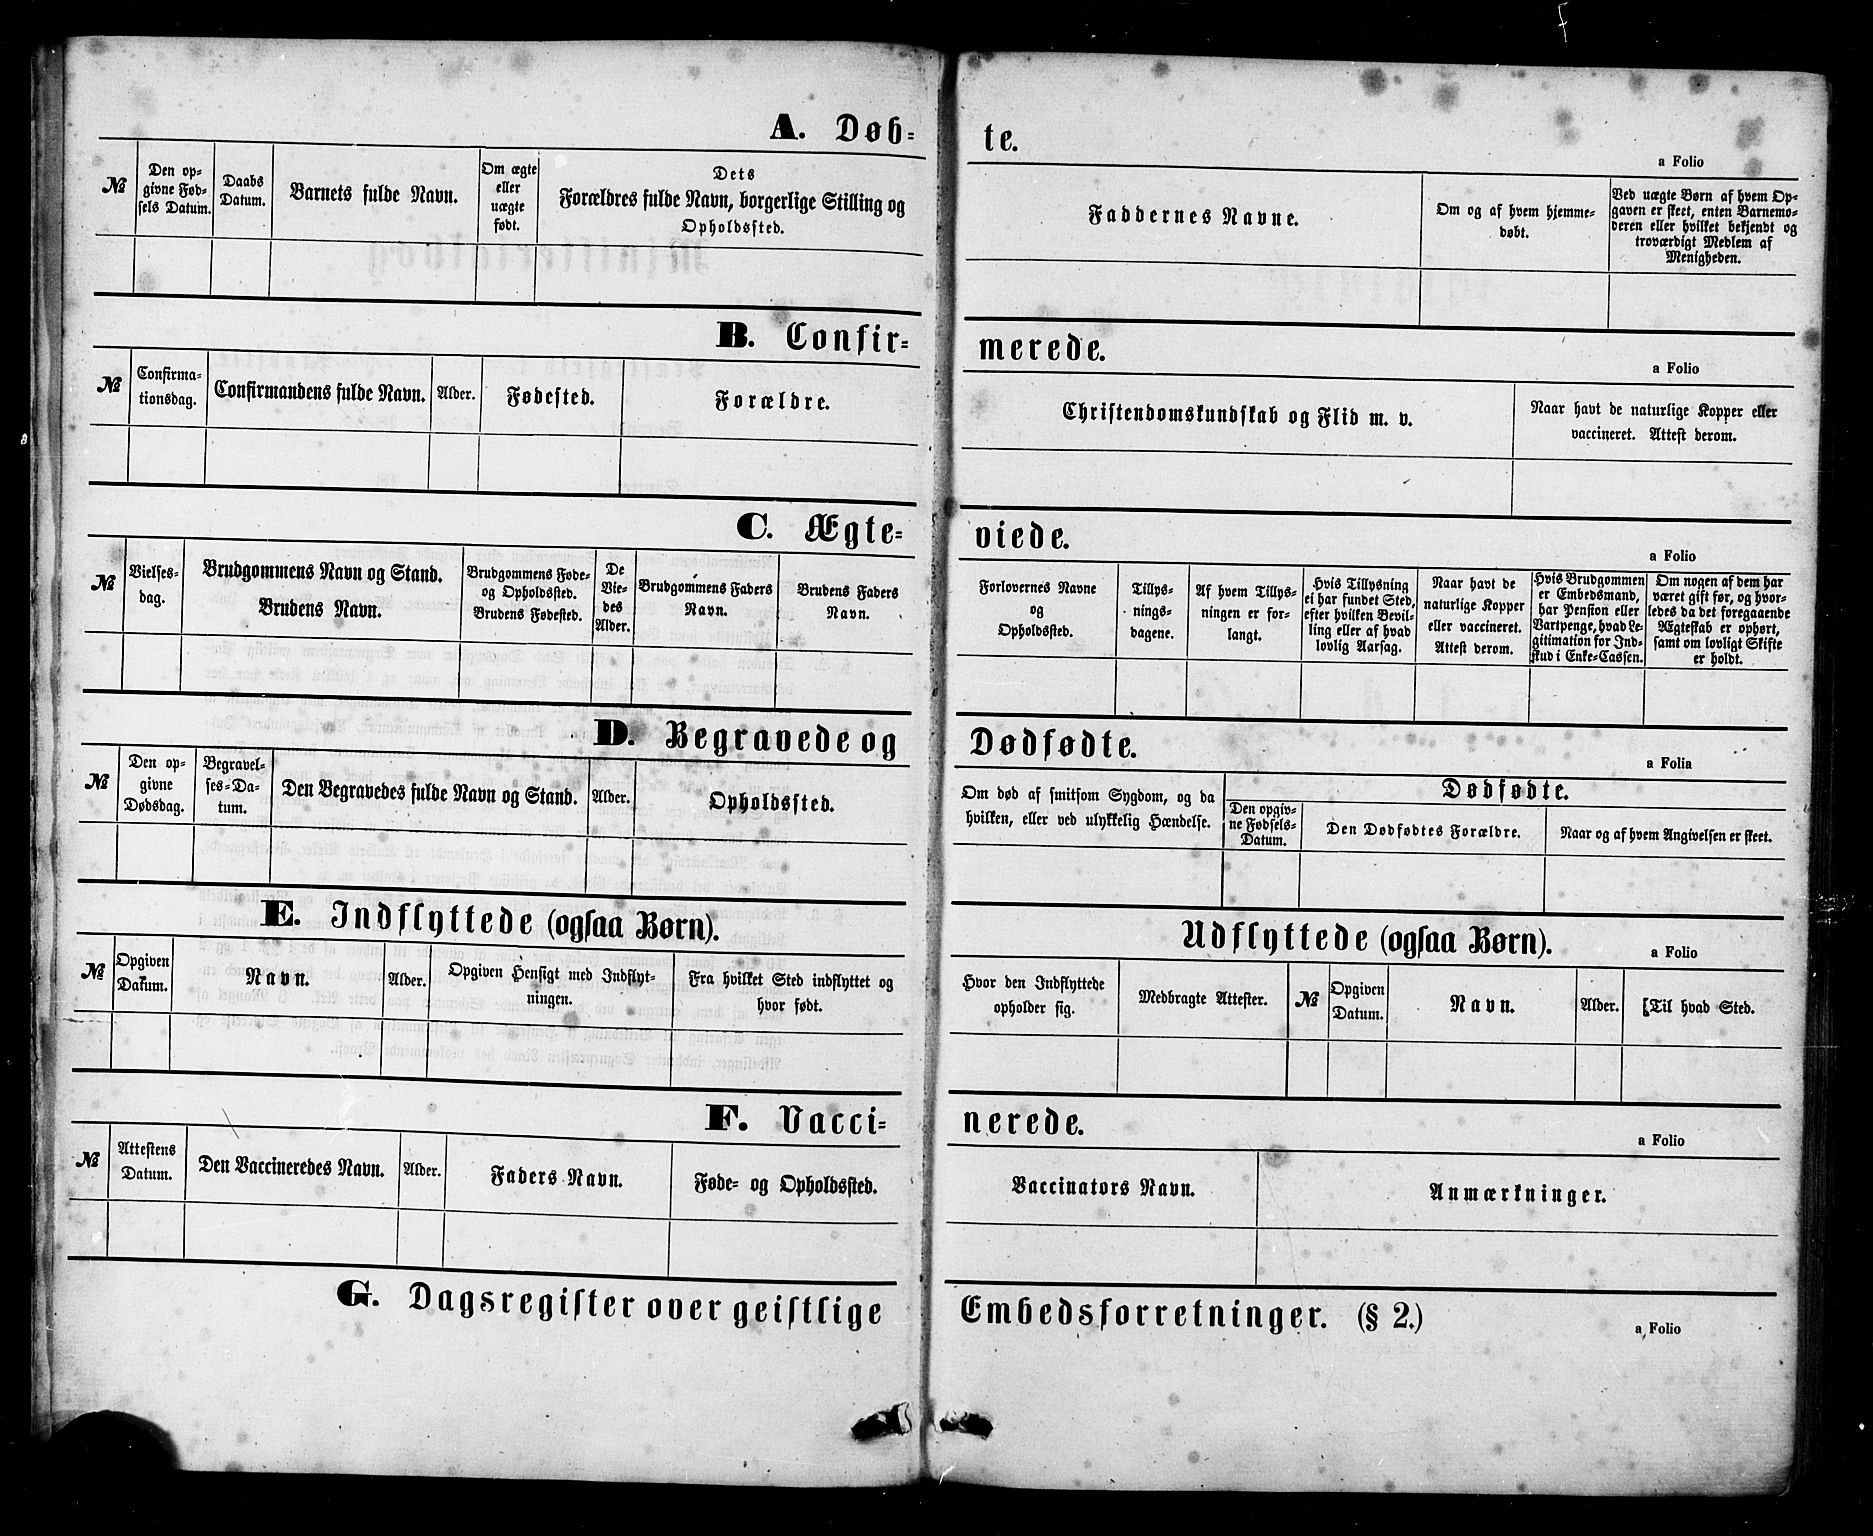 A. Døb=
te.
a Folio
№
Den op=
givne Fød=
sels Datum.
Daabs
Datum.
Barnets fulde Navn.
Om ægte
eller
uægte
født.
Dets
Forældres fulde Navn, borgerlige Stilling og
Opholdssted.
Faddernes Navne.
Om og af hvem hjemme=
døbt.
Ved uægte Børn af hvem Op=
gaven er skeet, enten Barnemo=
deren eller hvilket bekjendt og
troværdigt Medlem af
Menigheden.
B. Confir=
merede.
a Folio
№
Confirma=
tionsdag.
Confirmandens fulde Navn.
Alder.
Fødested.
Forældre.
Christendomskundskab og Flid m. v.
Naar havt de naturlige Kopper eller
vaccineret. Attest derom.
C. Ægte=
viede.
a Folio
№
Vielses=
dag.
Brudgommens Navn og Stand.
Brudens Navn.
Brudgommens Føde=
og Opholdssted.
Brudens Fødested.
De
Vie=
des
Alder.
Brudgommens Faders
Navn.
Brudens Faders
Navn.
Forlovernes Navne
og
Opholdssted.
Tillys=
nings=
dagene.
Af hvem Tillys=
ningen er for=
langt.
Hvis Tillysning
ei har fundet Sted,
efter hvilken Bevil=
ling eller af hvad
lovlig Aarsag.
Naar havt de
naturlige Kopper
eller vaccineret.
Attest derom.
Hvis Brudgommen
er Embedsmand,
har Pension eller
Vartpenge, hvad Le=
gitimation for Ind=
skud i Enke=Cassen.
Om nogen af dem har
været gift før, og hvor=
ledes da det foregaaende
Ægteskab er ophørt,
samt om lovligt Skifte
er holdt.
D. Begravede og
Dødfødte.
a Folia
№
Den op=
givne
Dødsdag.
Begravel=
ses=Da=
tum.
Den Begravedes fulde Navn og Stand.
Alder.
Opholdssted.
Om død af smitsom Sygdom, og da
hvilken, eller ved ulykkelig Hændelse.
Dødfødte.
Den opgiv=
ne Fødsels=
Datum.
Den Dødfødtes Forældre.
Naar og af hvem Angivelsen er skeet.
E. Indflyttede (ogsaa Børn).
Udflyttede (ogsaa Børn).
a Folio
№
Opgiven
Datum.
Navn.
Alder.
Opgiven Hensigt med Indflyt=
ningen.
Fra hvilket Sted indflyttet og
hvor født.
Hvor den Indflyttede
opholder sig.
Medbragte Attester.
№
Opgiven
Datum.
Navn.
Alder.
[Til hvad Sted.
F. Vacci=
nerede.
a Folio
№
Attestens
Datum.
Den Vaccineredes Navn.
Alder.
Faders Navn.
Føde= og Opholdssted.
Vaccinators Navn.
Anmærkninger.
G. Dagsregister over geistlige
Embedsforretninger. (§ 2.)
a Folio